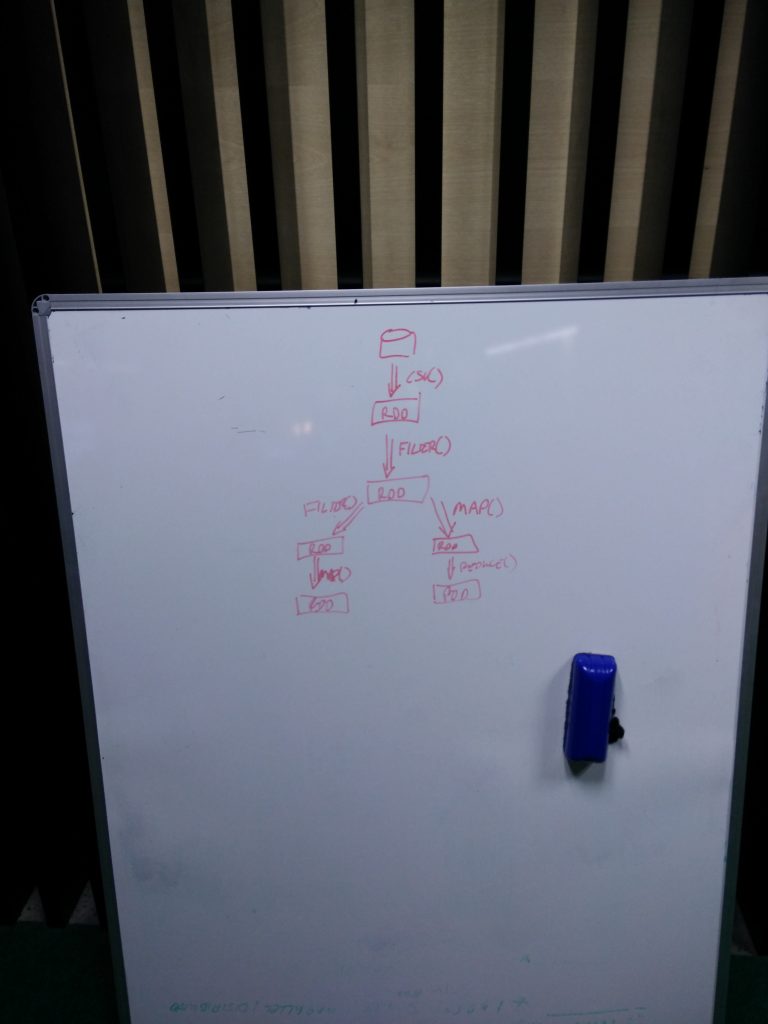 CSV()
RDD
FILTER()
RDD
FILTER() MAP()
RDD RDD
MAP() REDUCE()
RDD RDD